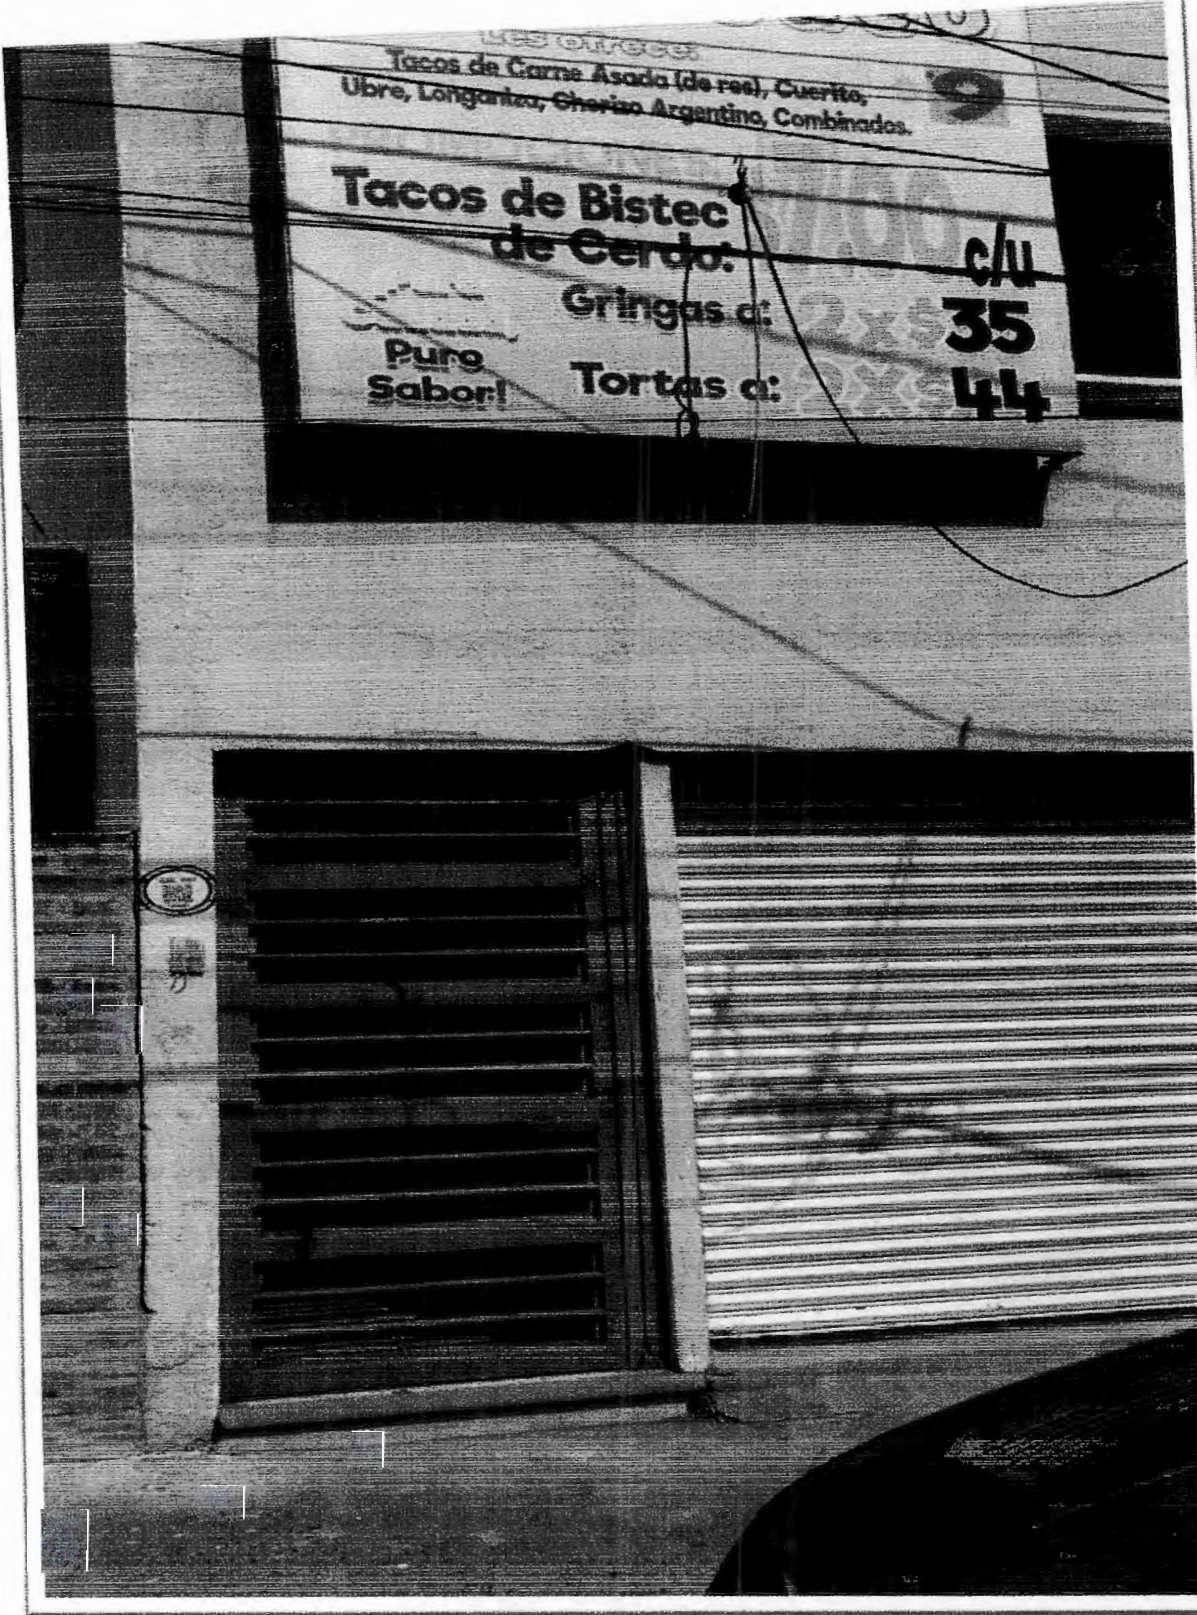 Les ofrece:
Tacos de Carne Asada (de res), Cuerito,
Ubre, Longaniza, Chorizo Argentino, Combinados.
9
Tacos de Bistec
de Cerdo:
c/u
Gringas a: 2x$35
Puro
Sabor!
Tortas a: 2x$44